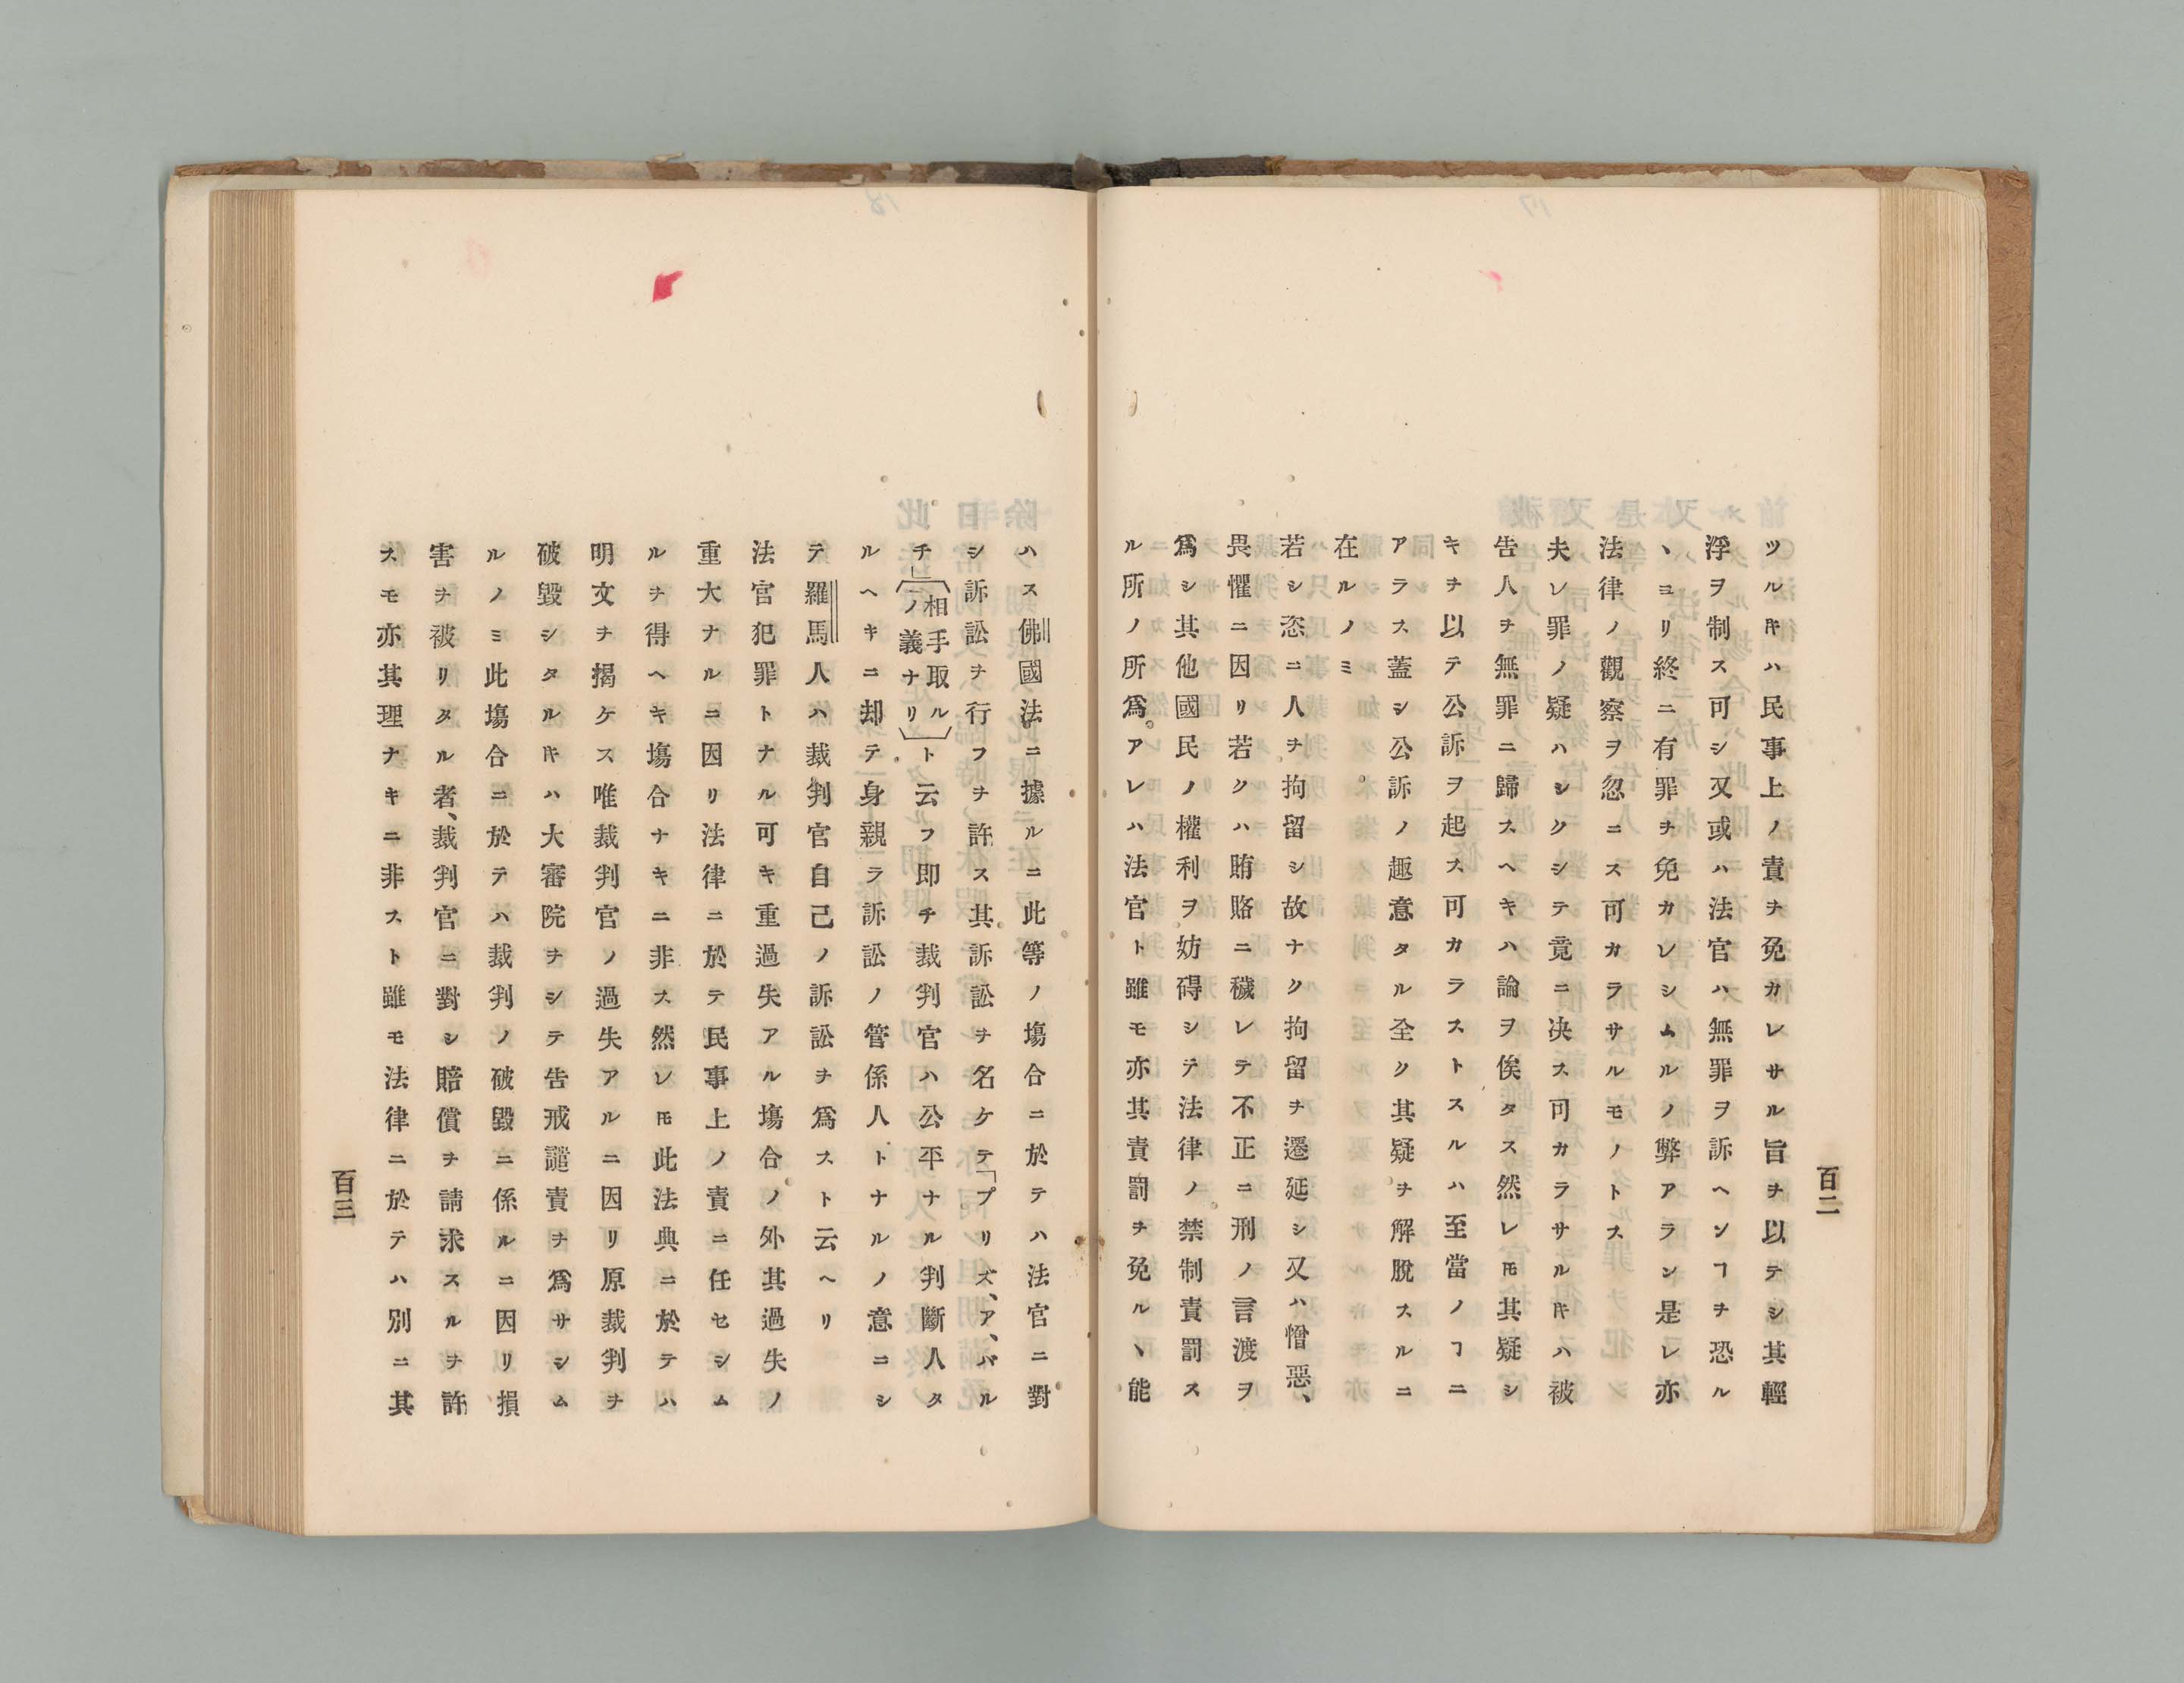 百二
ツルヰハ民事上ノ責ヲ免カレサル旨ヲ以テシ其輕
浮ヲ制ス可シ又或ハ法官ハ無罪ヲ訴ヘンヿヲ恐ル
ヽヨリ終ニ有罪ヲ免カレシムルノ弊アラン是レ亦
法律ノ觀察ヲ忽ニス可カラサルモノトス
夫レ罪ノ疑ハシクシテ竟ニ決ス可カラサルヰハ被
告人ヲ無罪ニ歸スヘキハ論ヲ俟タス然レ𪜈其疑シ
キヲ以テ公訴ヲ起ス可カラストスルハ至當ノヿニ
アラス蓋シ公訴ノ趣意タル全ク其疑ヲ解脫スルニ
在ルノミ
若シ恣ニ人ヲ拘留シ故ナク拘留ヲ遷延シ又ハ憎惡、
畏懼ニ因リ若クハ賄賂ニ穢レテ不正ニ刑ノ言渡ヲ
爲シ其他國民ノ權利ヲ妨碍シテ法律ノ禁制責罰ス
ル所ノ所爲。アレハ法官ト雖モ亦其責罰ヲ免ルヽ能
ハス佛國法ニ據ルニ此等ノ塲合ニ於テハ法官ニ對
シ訴訟ヲ行フヲ許ス其訴訟ヲ名ケテ「プリズ、ア、パル
チー」〔相手取ルノ義ナリ〕ト云フ即チ裁判官ハ公平ナル判斷人タ
ルヘキニ却テ身親ラ訴訟ノ管係人トナルノ意ニシ
テ羅馬人ハ裁判官自己ノ訴訟ヲ爲スト云ヘリ
法官犯罪トナル可キ重過失アル塲合ノ外其過失ノ
重大ナルニ因リ法律ニ於テ民事上ノ責ニ任セシム
ルヲ得ヘキ塲合ナキニ非ス然レ𪜈此法典ニ於テハ
明文ヲ揭ケス唯裁判官ノ過失アルニ因リ原裁判ヲ
破毀シタルヰハ大審院ヲシテ告戒譴責ヲ爲サシム
ルノミ此塲合ニ於テハ裁判ノ破毀ニ係ルニ因リ損
害ヲ被リタル者、裁判官ニ對シ賠償ヲ請求スルヲ許
スモ亦其理ナキニ非スト雖モ法律ニ於テハ別ニ其
百三